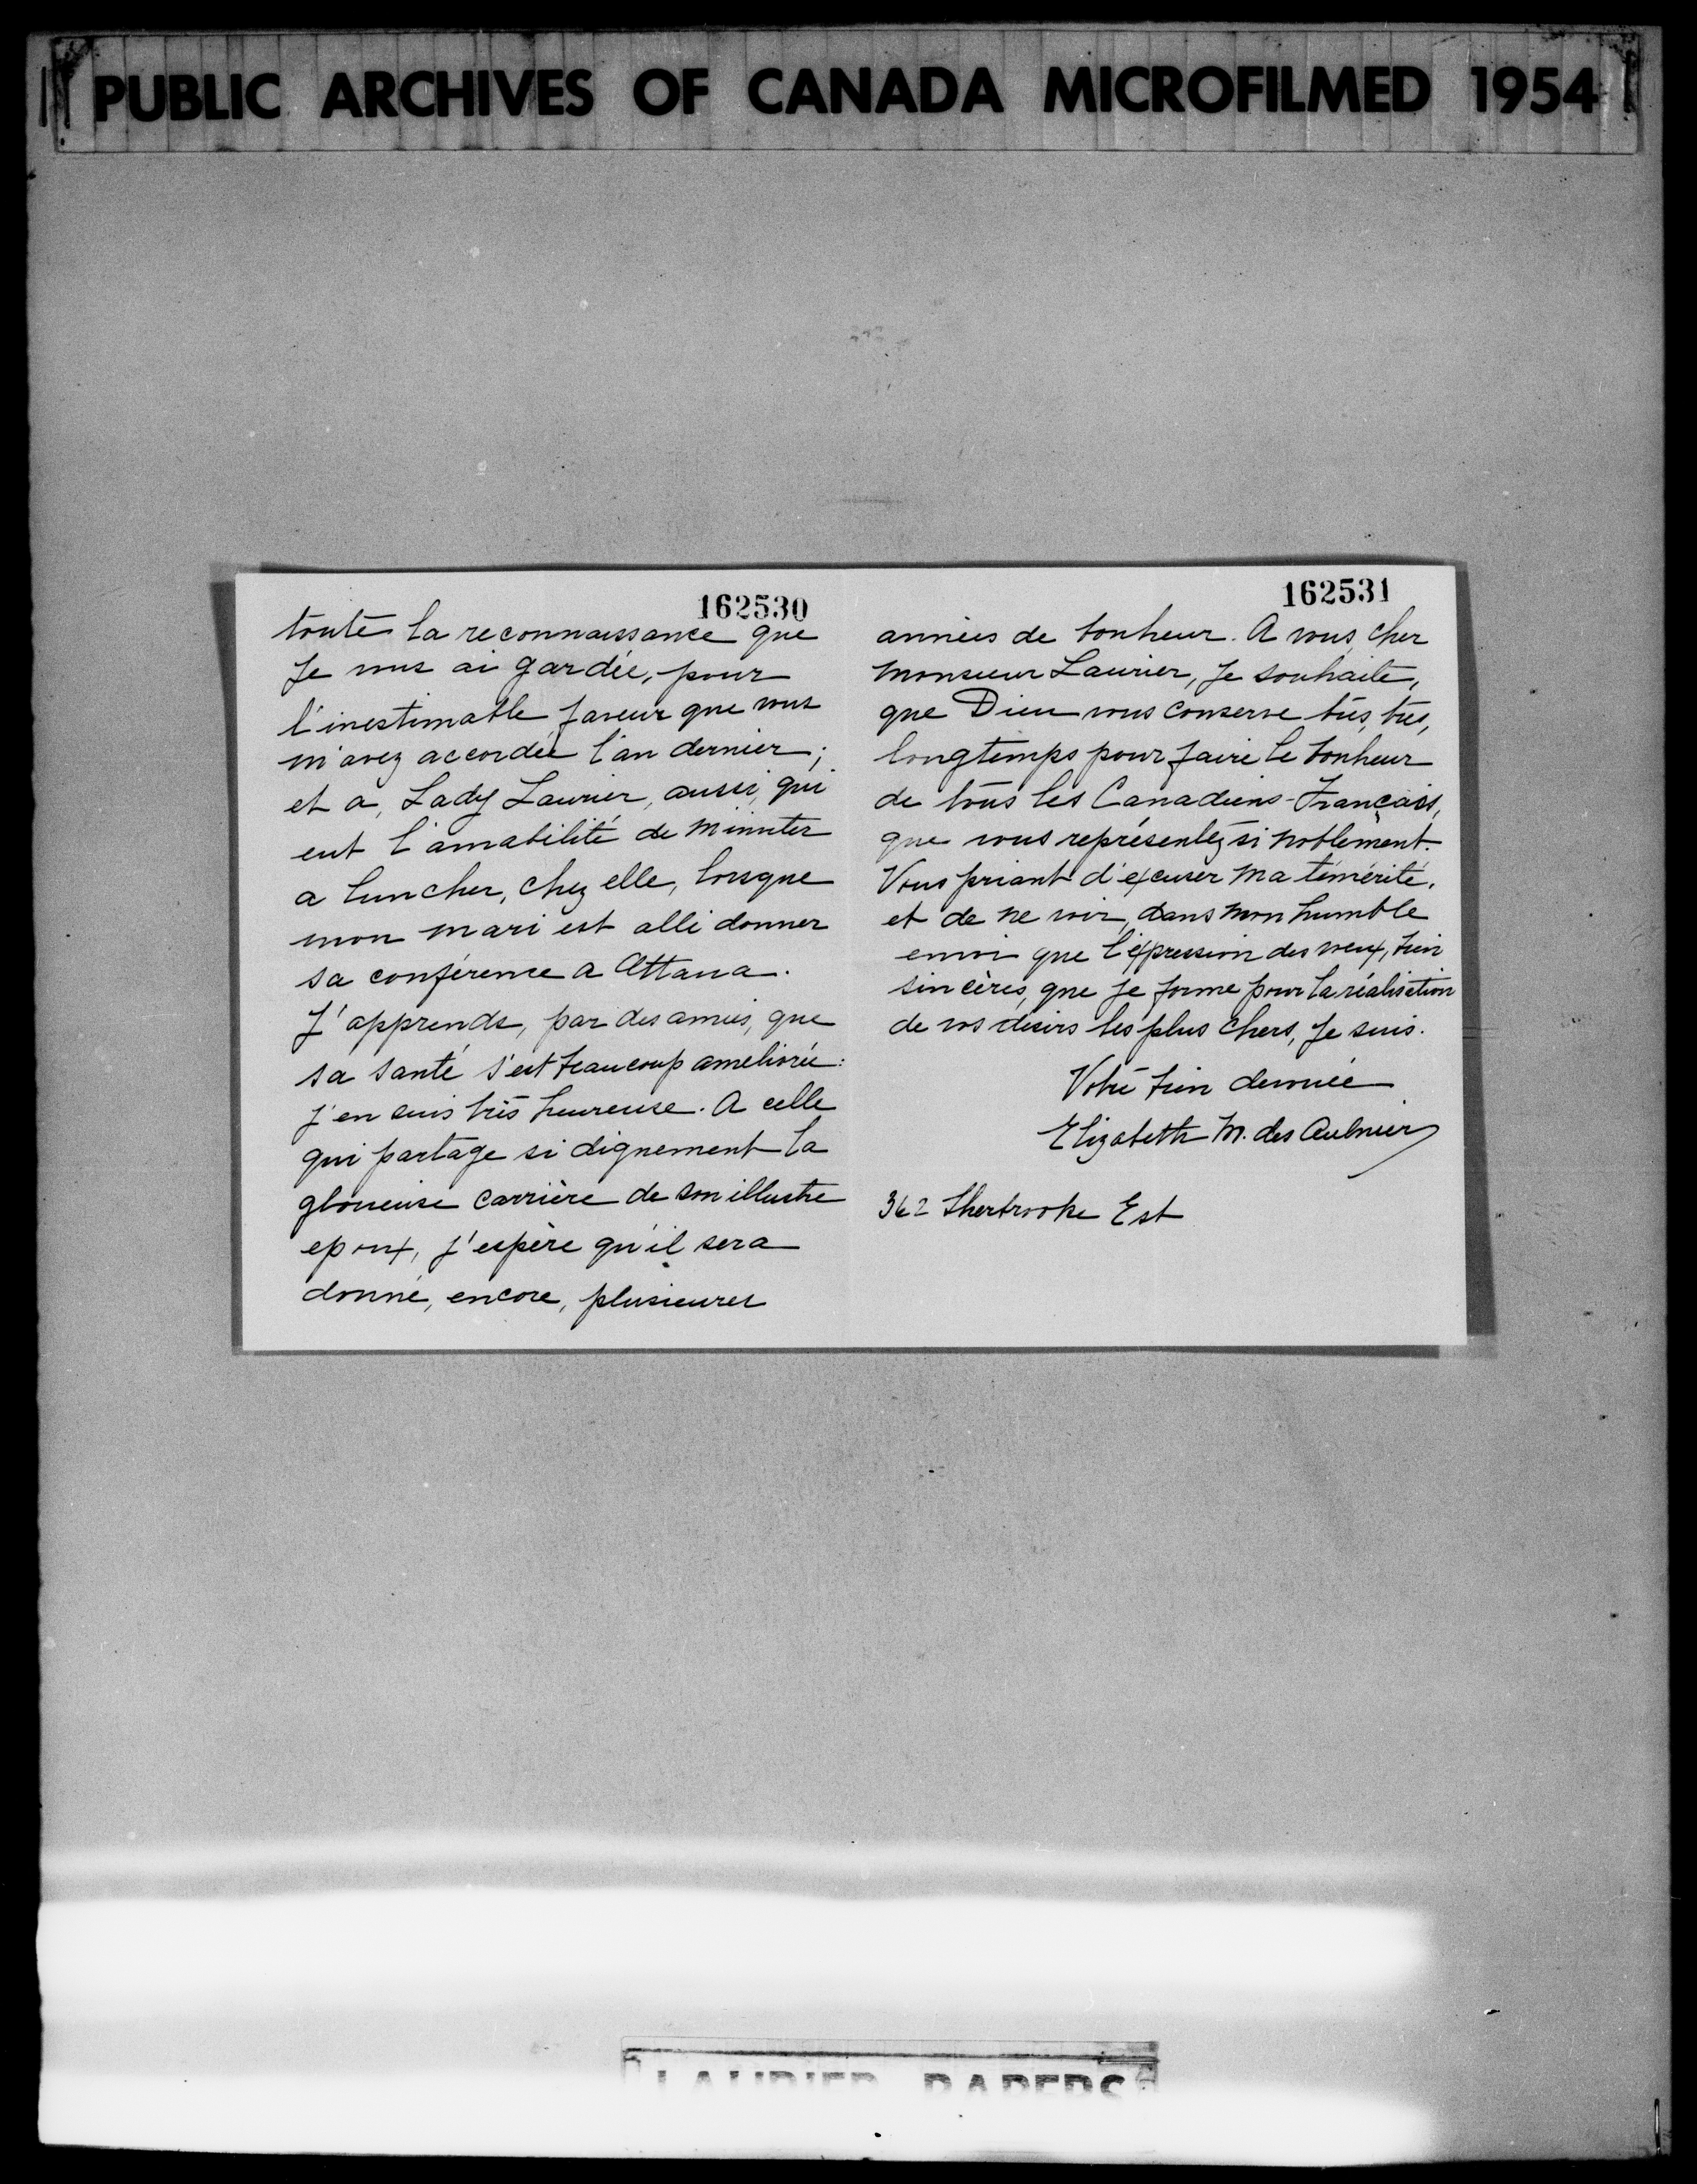 PUBLIC ARCHIVES OF CANADA MICROFILMED 1954
162530
toute la reconnaissance que
Je vous ai gardée, pour
l'inestimable faveur que vous
m'avez accordée l'an dernier;
et a, Lady Laurier, aussi, qui
eut l'amabilité de m'inviter
a luncher, chez elle, lorsque
mon mari est allé donner
sa conférence a Ottawa.
J'apprends, par des amies, que
sa santé s'est beaucoup ameliorée:
j'en suis très heureuse. A celle
qui partage si dignement la
glorieuse carrière de son illustre
epoux, j'espère qu'il sera
donné, encore, plusieures
162531
années de bonheur. A vous, cher
Monsieur Laurier, Je souhaite,
que Dieu vous conserve très, très,
longtemps pour faire le bonheur
de tous les Canadiens-Français,
que vous représentez si noblement.
Vous priant d'excuser ma témérité,
et de ne voir, dans mon humble
envoi que l'expression des voeux, bien
sincères, que je forme pour la réalisation
de vos désirs les plus chers, Je suis.
Votre bien dévouée
Elizabeth M. des Aulnier
362 Sherbrooke Est
LAURIER PAPERS